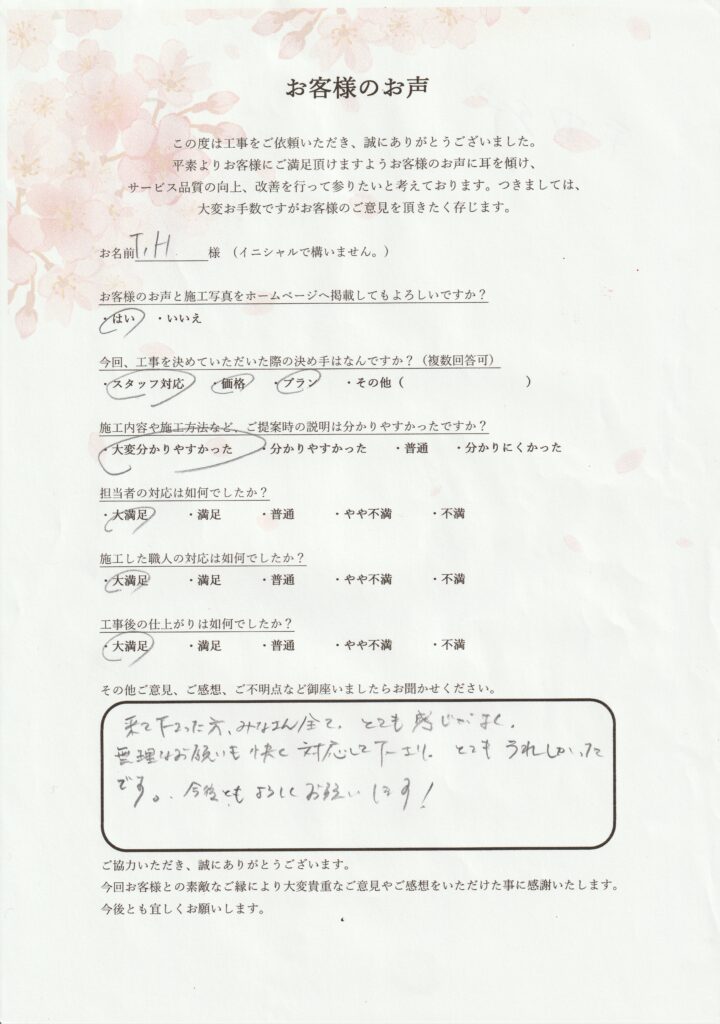 お客様のお声
この度は工事をご依頼いただき、誠にありがとうございました。
平素よりお客様にご満足頂けますようお客様のお声に耳を傾け、
サービス品質の向上、改善を行って参りたいと考えております。つきましては、
大変お手数ですがお客様のご意見を頂きたく存じます。
お名前 T.H 様 （イニシャルで構いません。）
お客様のお声と施工写真をホームページへ掲載してもよろしいですか？
・はい ・いいえ
今回、工事を決めていただいた際の決め手はなんですか？（複数回答可）
・スタッフ対応 ・価格 ・プラン ・その他（ ）
施工内容や施工方法など、ご提案時の説明は分かりやすかったですか？
・大変分かりやすかった ・分かりやすかった ・普通 ・分かりにくかった
担当者の対応は如何でしたか？
・大満足 ・満足 ・普通 ・やや不満 ・不満
施工した職人の対応は如何でしたか？
・大満足 ・満足 ・普通 ・やや不満 ・不満
工事後の仕上がりは如何でしたか？
・大満足 ・満足 ・普通 ・やや不満 ・不満
その他ご意見、ご感想、ご不明点など御座いましたらお聞かせください。
来て下さった方、みなさん全て、とても感じがよく、
無理なお願いも快く対応して下さり、とてもうれしかった
です。今後ともよろしくお願いします！
ご協力いただき、誠にありがとうございます。
今回お客様との素敵なご縁により大変貴重なご意見やご感想をいただけた事に感謝いたします。
今後とも宜しくお願いします。